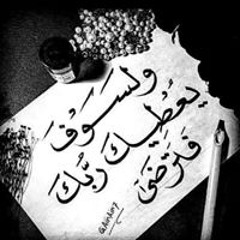 ولَسَوْفَ
يُعْطِيكَ رَبُّكَ
فَتَرْضَى